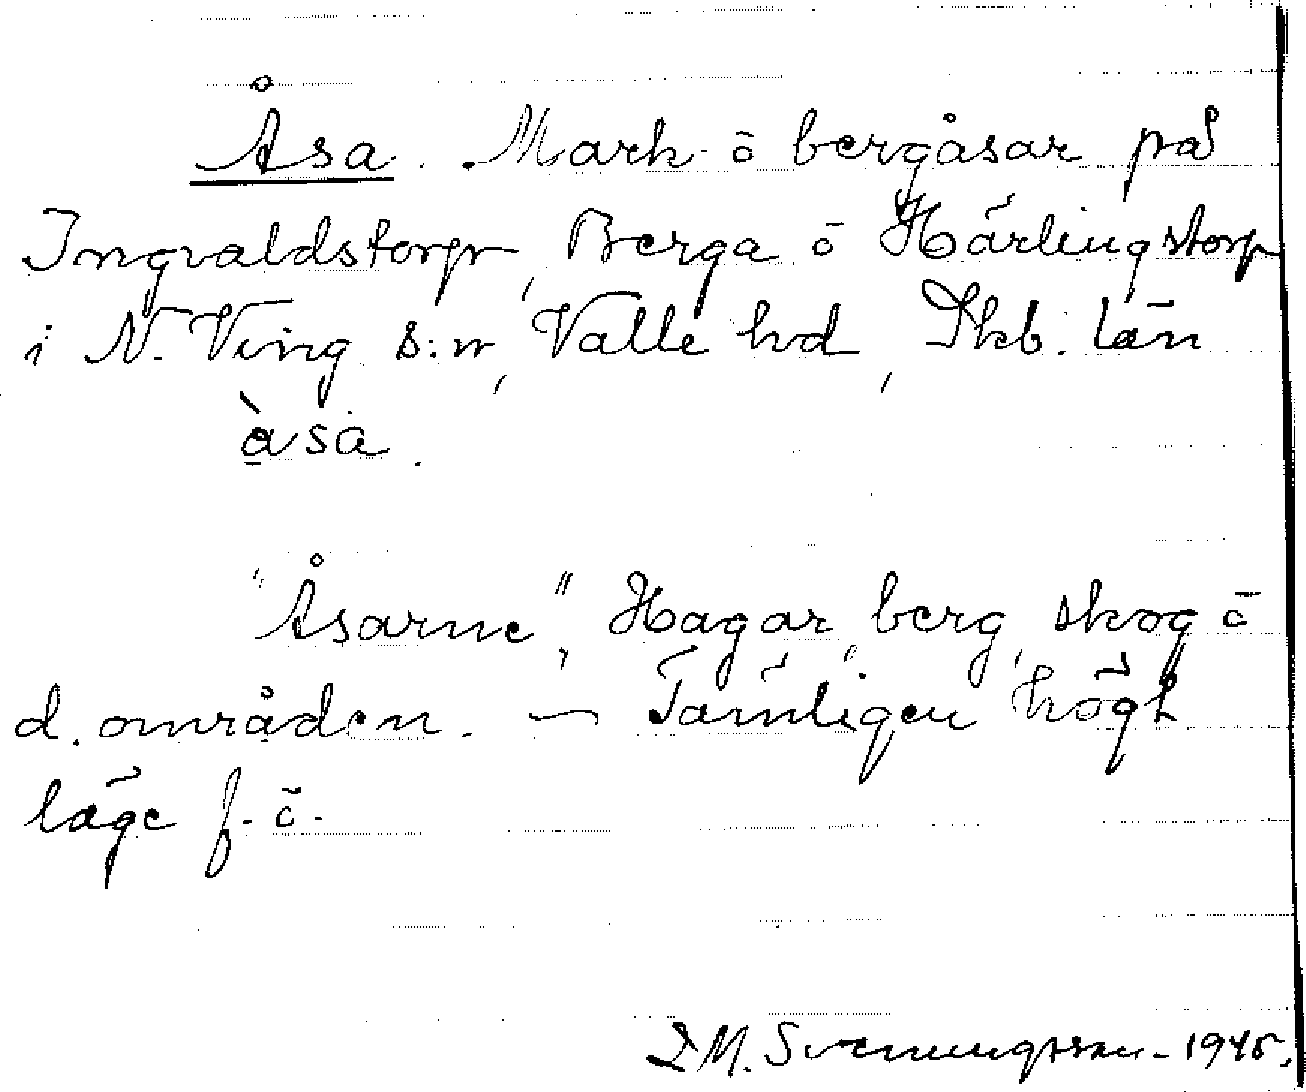 Åsa. Mark- ō bergåsar på
Ingvaldstorp, Berga ō Härlingstorp
i N. Ving s:n, Valle hd, Skb. län
àsa.
"Åsarne", Hagar, berg, skog ō
d. områden. — Tämligen högt
läge f. ö.
M. Svenungsson - 1945.